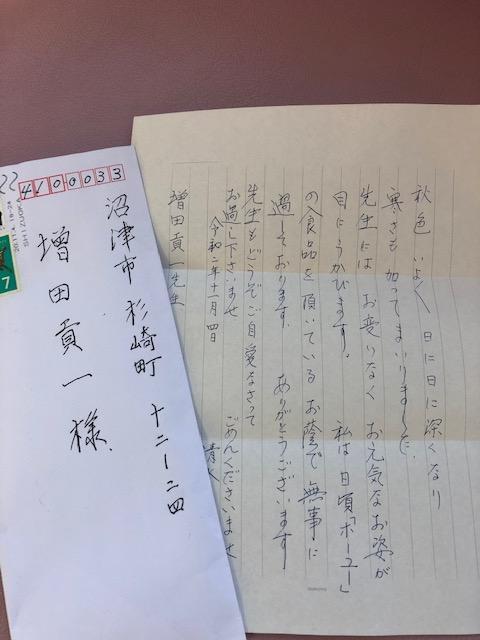 4100033
沼津市杉崎町 十二ー二四
増田貢一様
秋色 いよく 日に日に深くなり
寒さも加ってまいりました。
先生には お変りなく お元気なお姿が
目にうかびます。 私は日頃「ポーユー」
の食品を頂いている お蔭で 無事に
過しております。 ありがとうございます
先生も どうぞご自愛なさって
お過し下さいませ ごめんくださいませ
令和二年十一月四日
増田貢一先生